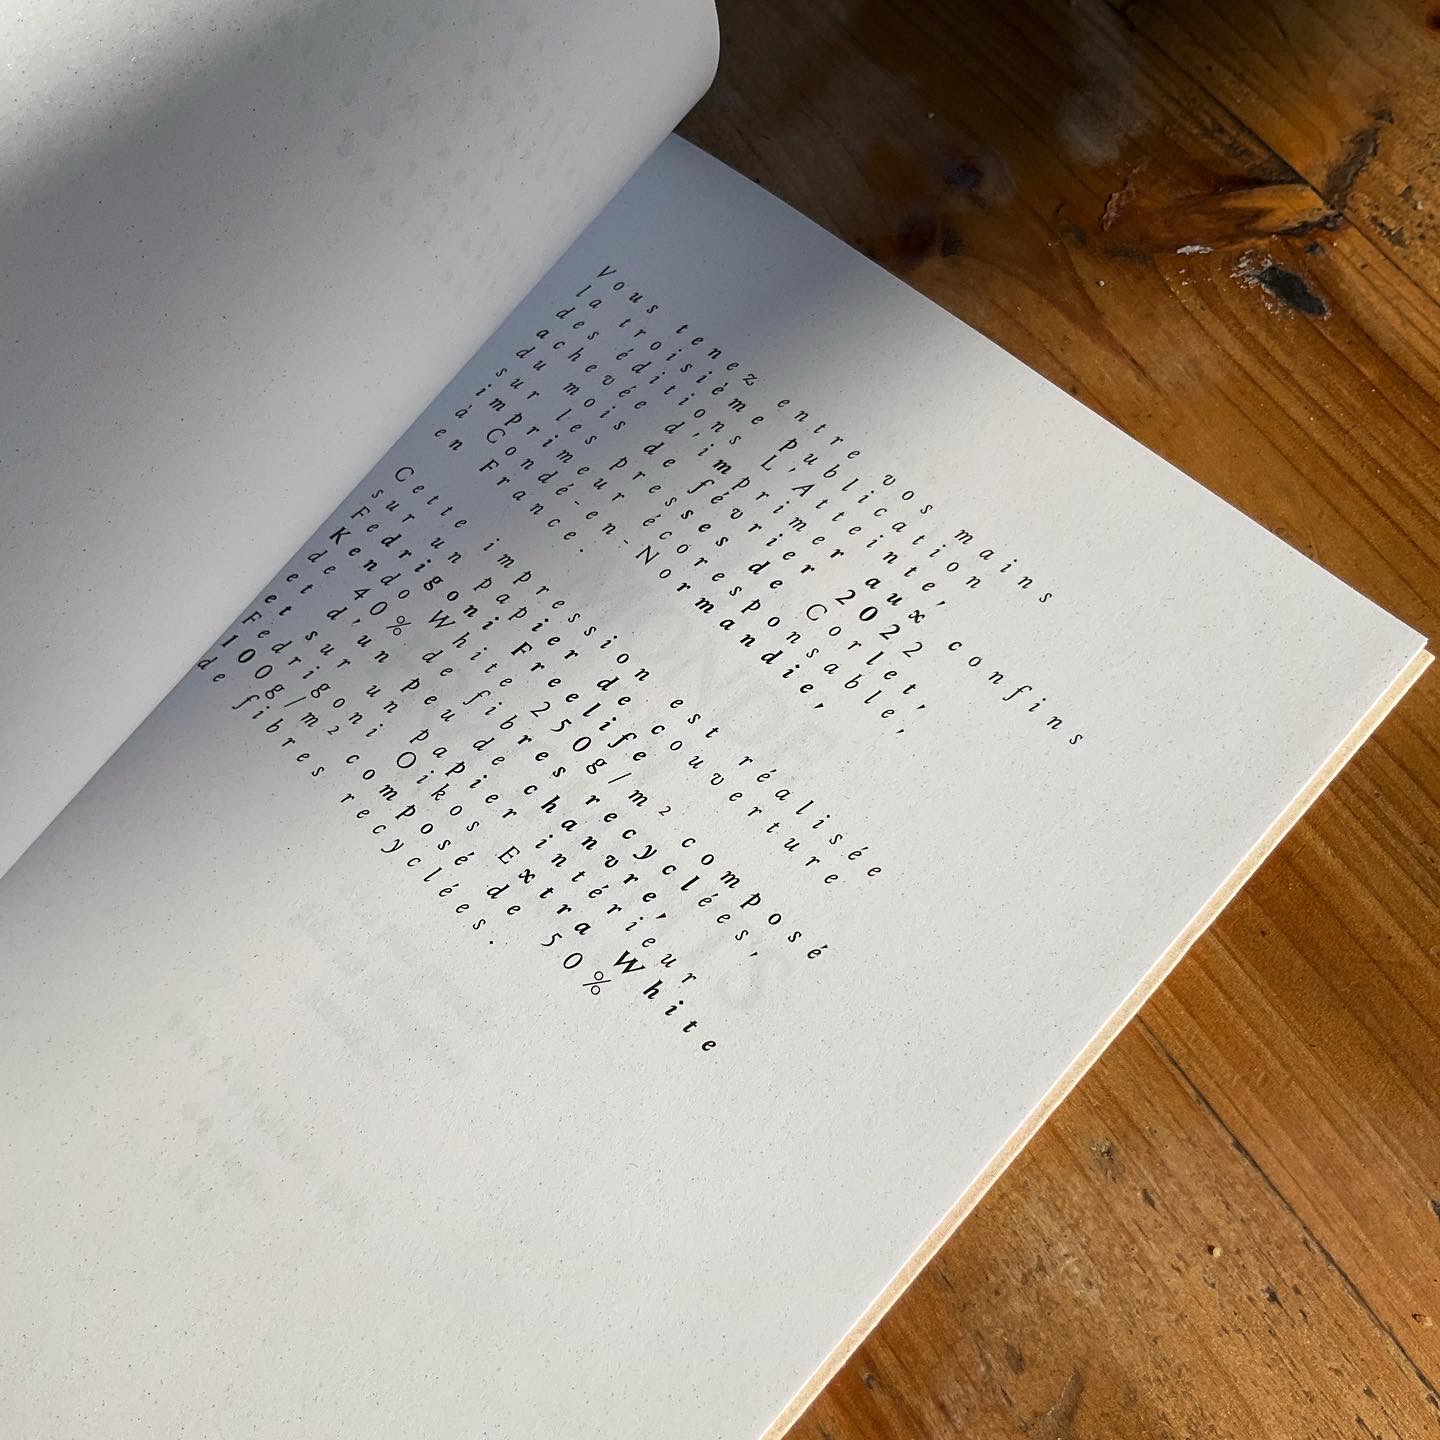 Vous tenez entre vos mains
la troisième publication
des éditions L'Atteinte,
achevée d'imprimer aux confins
du mois de février 2022
sur les presses de Corlet,
imprimeur écoresponsable,
à Condé-en-Normandie,
en France.
Cette impression est réalisée
sur un papier de couverture
Fedrigoni Freelife
Kendo White 250g/m² composé
de 40% de fibres recyclées,
et d'un peu de chanvre,
et sur un papier intérieur
Fedrigoni Oikos Extra White
100g/m² composé de 50%
de fibres recyclées.